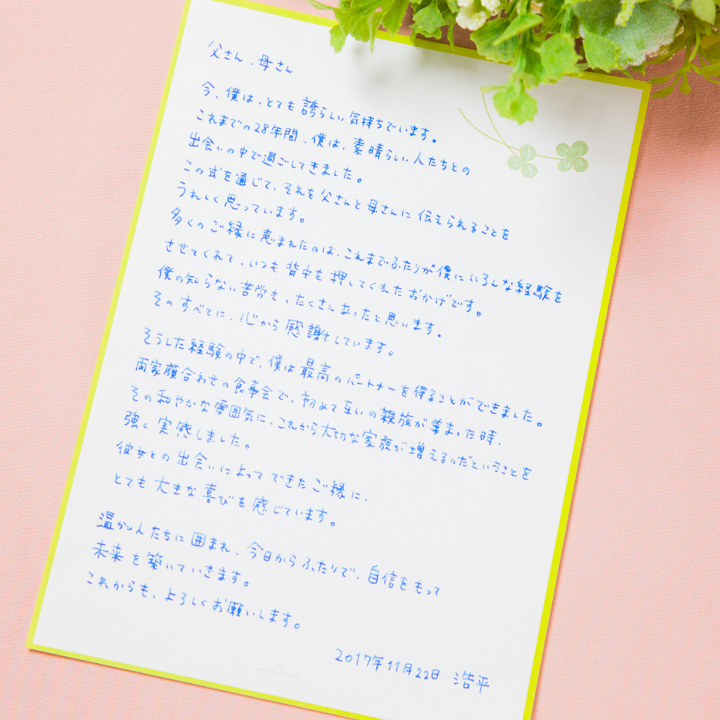 父さん、母さん
今、僕は、とても誇らしい気持ちでいます。
これまでの28年間、僕は、素晴らしい人たちとの
出会いの中で過ごしてきました。
この式を通じて、それを父さんと母さんに伝えられることを
うれしく思っています。
多くのご縁に恵まれたのは、これまでふたりが僕にいろんな経験を
させてくれて、いつも背中を押してくれたおかげです。
僕の知らない苦労も、たくさんあったと思います。
そのすべてに、心から感謝しています。
そうした経験の中で、僕は最高のパートナーを得ることができました。
両家顔合わせの食事会で、初めて互いの親族が集まった時、
その和やかな雰囲気に、これから大切な家族が増えるのだということを
強く実感しました。
彼女との出会いによってできたご縁に、
とても大きな喜びを感じています。
温かい人たちに囲まれ、今日からふたりで、自信をもって
未来を築いていきます。
これからも、よろしくお願いします。
2017年11月22日 浩平